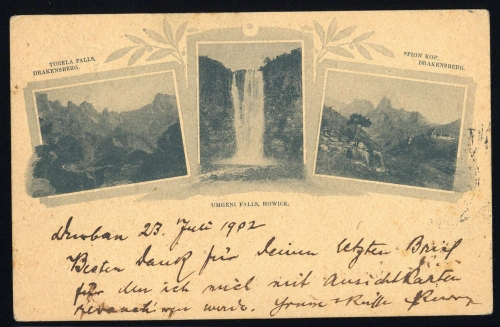 TUGELA FALLS,
DRAKENSBERG.
SPION KOP,
DRAKENSBERG.
UMGENI FALLS, HOWICK.
Durban 23. Juli 1902
Besten Dank für Deinen letzten Brief
für den ich mich mit Ansichtkarten
revanchiren werde.